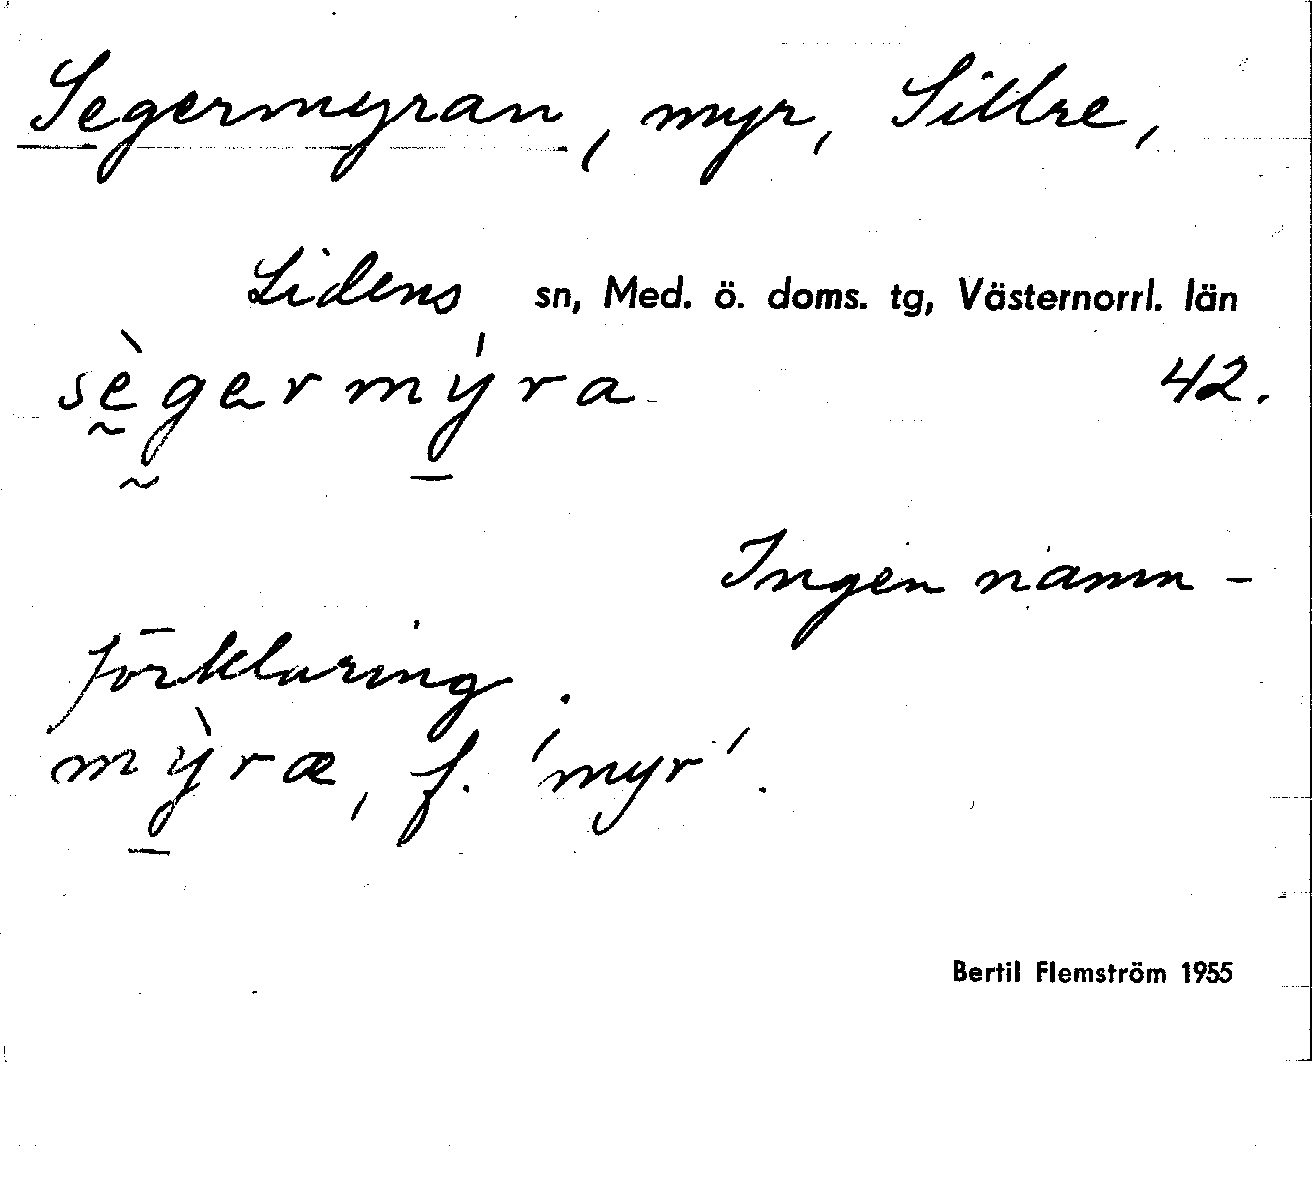 Segermyran, myr, Sillre,
Lidens sn, Med. ö. doms. tg, Västernorrl. län
sègermýra 42.
Ingen namn-
förklaring.
mỳræ, f. 'myr'.
Bertil Flemström 1955